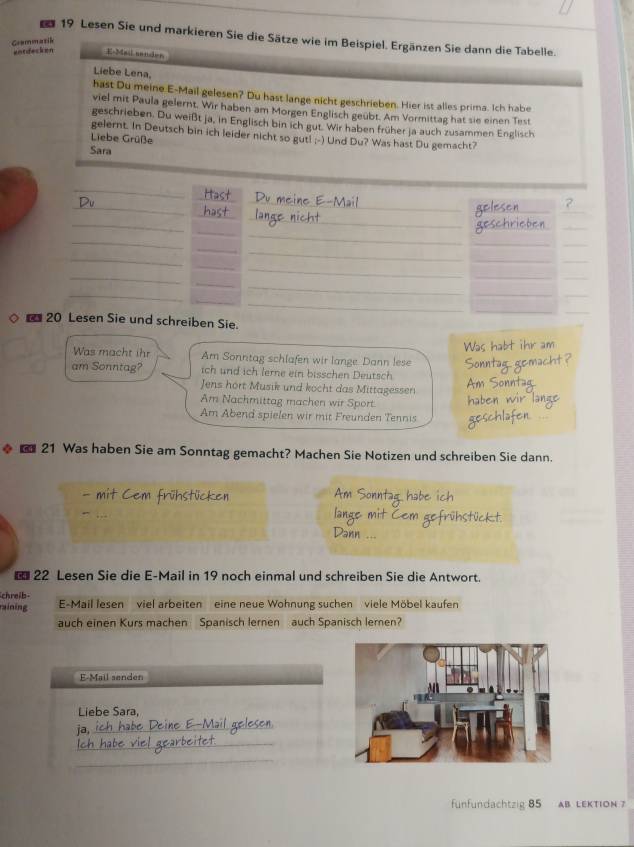 C4 19 Lesen Sie und markieren Sie die Sätze wie im Beispiel. Ergänzen Sie dann die Tabelle.
Grammatik
entdecken
E-Mail senden
Liebe Lena,
hast Du meine E-Mail gelesen? Du hast lange nicht geschrieben. Hier ist alles prima. Ich habe
viel mit Paula gelernt. Wir haben am Morgen Englisch geübt. Am Vormittag hat sie einen Test
geschrieben. Du weißt ja, in Englisch bin ich gut. Wir haben früher ja auch zusammen Englisch
gelernt. In Deutsch bin ich leider nicht so gut! ;-) Und Du? Was hast Du gemacht?
Liebe Grüße
Sara
Hast Du meine E-Mail gelesen ?
Du hast lange nicht geschrieben
C4 20 Lesen Sie und schreiben Sie.
Was macht ihr
am Sonntag?
Am Sonntag schlafen wir lange. Dann lese
ich und ich lerne ein bisschen Deutsch.
Jens hört Musik und kocht das Mittagessen.
Am Nachmittag machen wir Sport.
Am Abend spielen wir mit Freunden Tennis.
Was habt ihr am
Sonntag gemacht?
Am Sonntag
haben wir lange
geschlafen. ...
C4 21 Was haben Sie am Sonntag gemacht? Machen Sie Notizen und schreiben Sie dann.
– mit Cem frühstücken
– ...
Am Sonntag habe ich
lange mit Cem gefrühstückt.
Dann ...
C4 22 Lesen Sie die E-Mail in 19 noch einmal und schreiben Sie die Antwort.
Schreib-
training
E-Mail lesen viel arbeiten eine neue Wohnung suchen viele Möbel kaufen
auch einen Kurs machen Spanisch lernen auch Spanisch lernen?
E-Mail senden
Liebe Sara,
ja, ich habe Deine E-Mail gelesen.
Ich habe viel gearbeitet.
fünfundachtzig 85 AB LEKTION 7